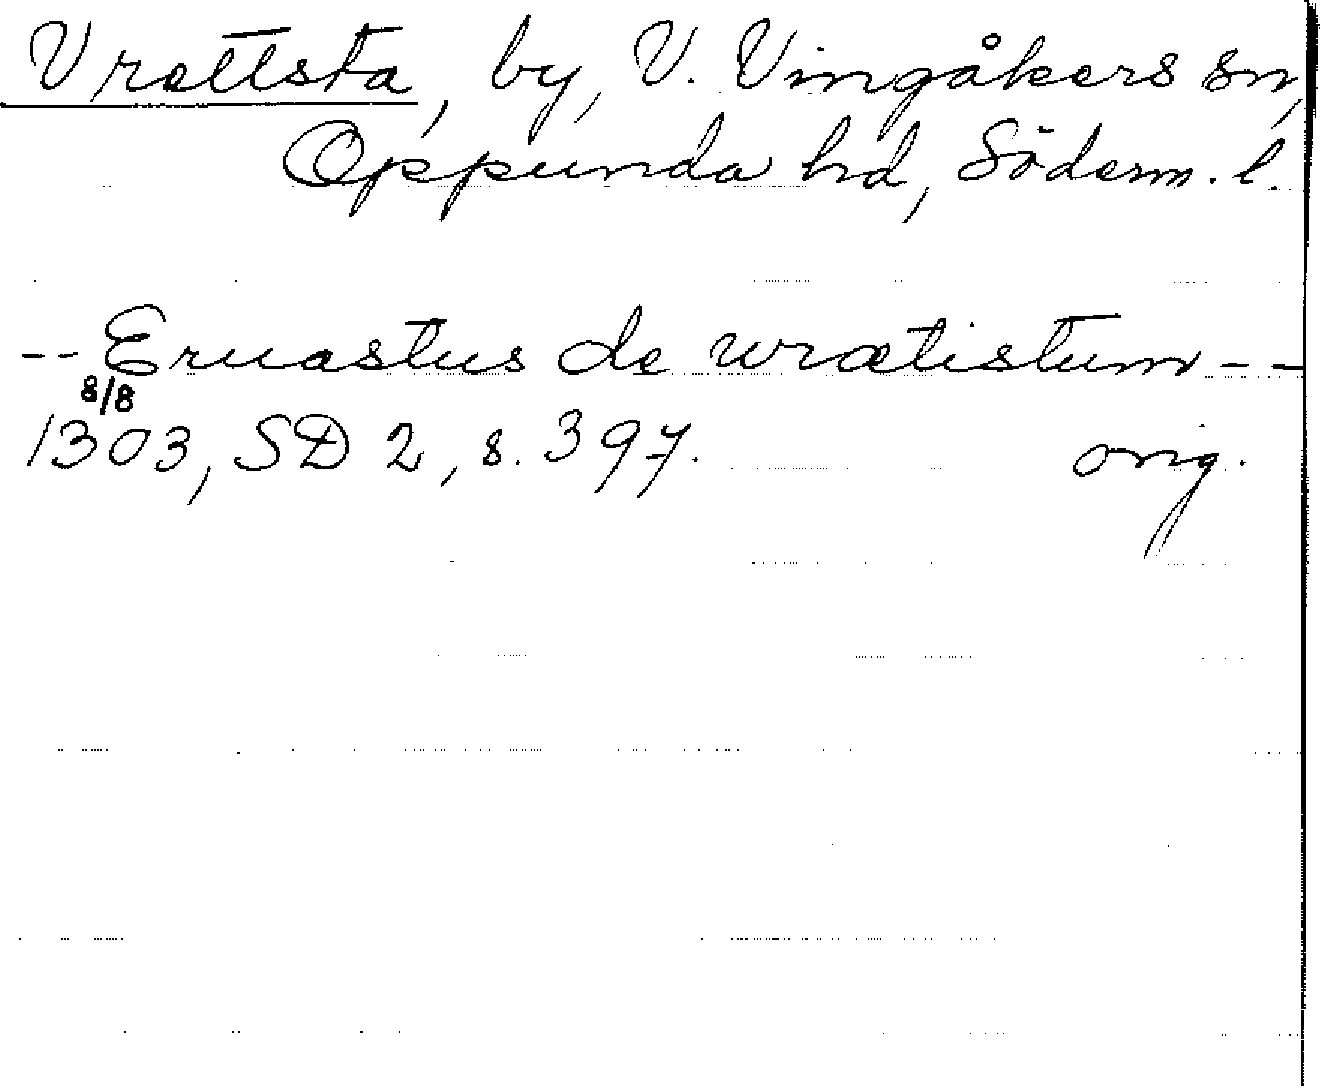 Vrettsta, by, V. Vingåkers sn,
Oppunda hd, Söderm. l.
-- Eruastus de wrætistum --
8/8
1303, SD 2, s. 397. orig.